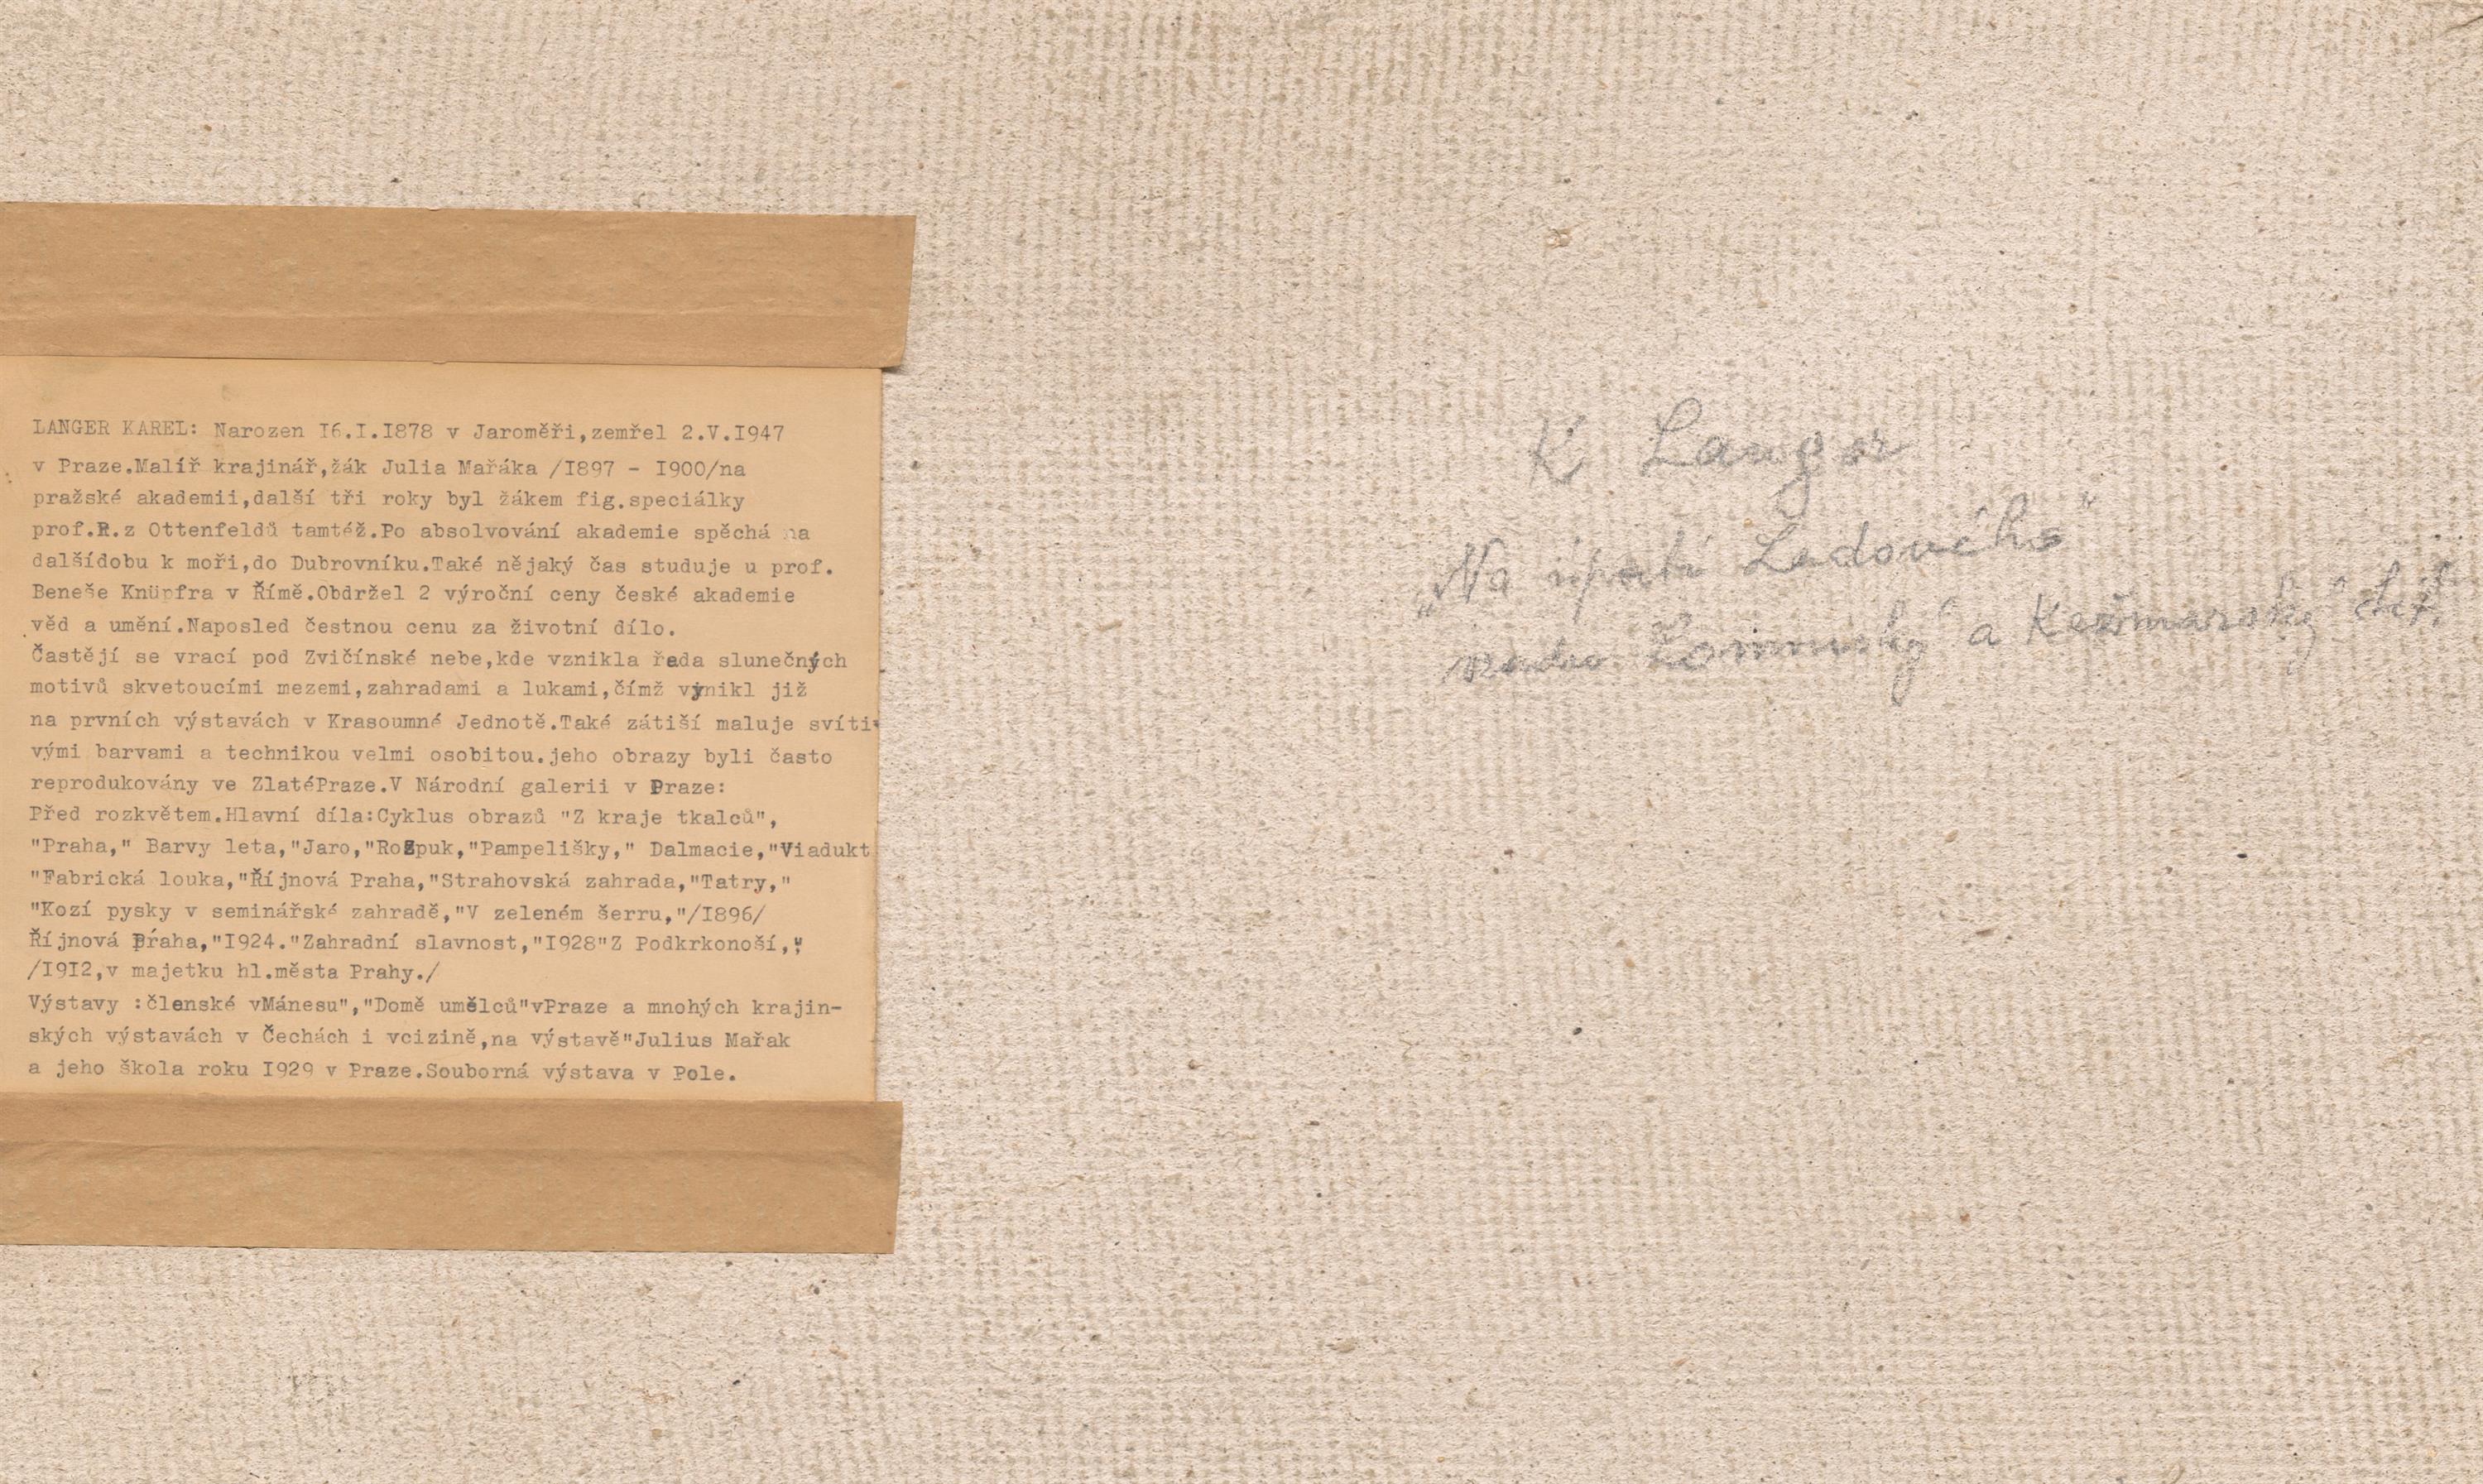 LANGER KAREL: Narozen I6.I.I878 v Jaroměři,zemřel 2.V.I947
v Praze.Malíř krajinář,žák Julia Mařáka /I897 - I900/na
pražské akademii,další tři roky byl žákem fig.speciálky
prof.R.z Ottenfeldů tamtéž.Po absolvování akademie spěchá na
dalšídobu k moři,do Dubrovníku.Také nějaký čas studuje u prof.
Beneše Knüpfra v Římě.Obdržel 2 výroční ceny české akademie
věd a umění.Naposled čestnou cenu za životní dílo.
Častějí se vrací pod Zvičínské nebe,kde vznikla řada slunečných
motivů skvetoucími mezemi,zahradami a lukami,čímž vynikl již
na prvních výstavách v Krasoumné Jednotě.Také zátiší maluje svíti-
vými barvami a technikou velmi osobitou.jeho obrazy byli často
reprodukovány ve ZlatéPraze.V Národní galerii v Praze:
Před rozkvětem.Hlavní díla:Cyklus obrazů "Z kraje tkalců",
"Praha," Barvy leta,"Jaro,"Rozpuk,"Pampelišky," Dalmacie,"Viadukt
"Fabrická louka,"Říjnová Praha,"Strahovská zahrada,"Tatry,"
"Kozí pysky v seminářské zahradě,"V zeleném šerru,"/I896/
Říjnová Praha,"I924."Zahradní slavnost,"I928"Z Podkrkonoší,"
/I9I2,v majetku hl.města Prahy./
Výstavy :členské vMánesu","Domě umělců"vPraze a mnohých krajin-
ských výstavách v Čechách i vcizině,na výstavě"Julius Mařak
a jeho škola roku I929 v Praze.Souborná výstava v Pole.
K Langer
„Na úpatí Ledového"
vzadu Lomnický a Kežmarský štít.